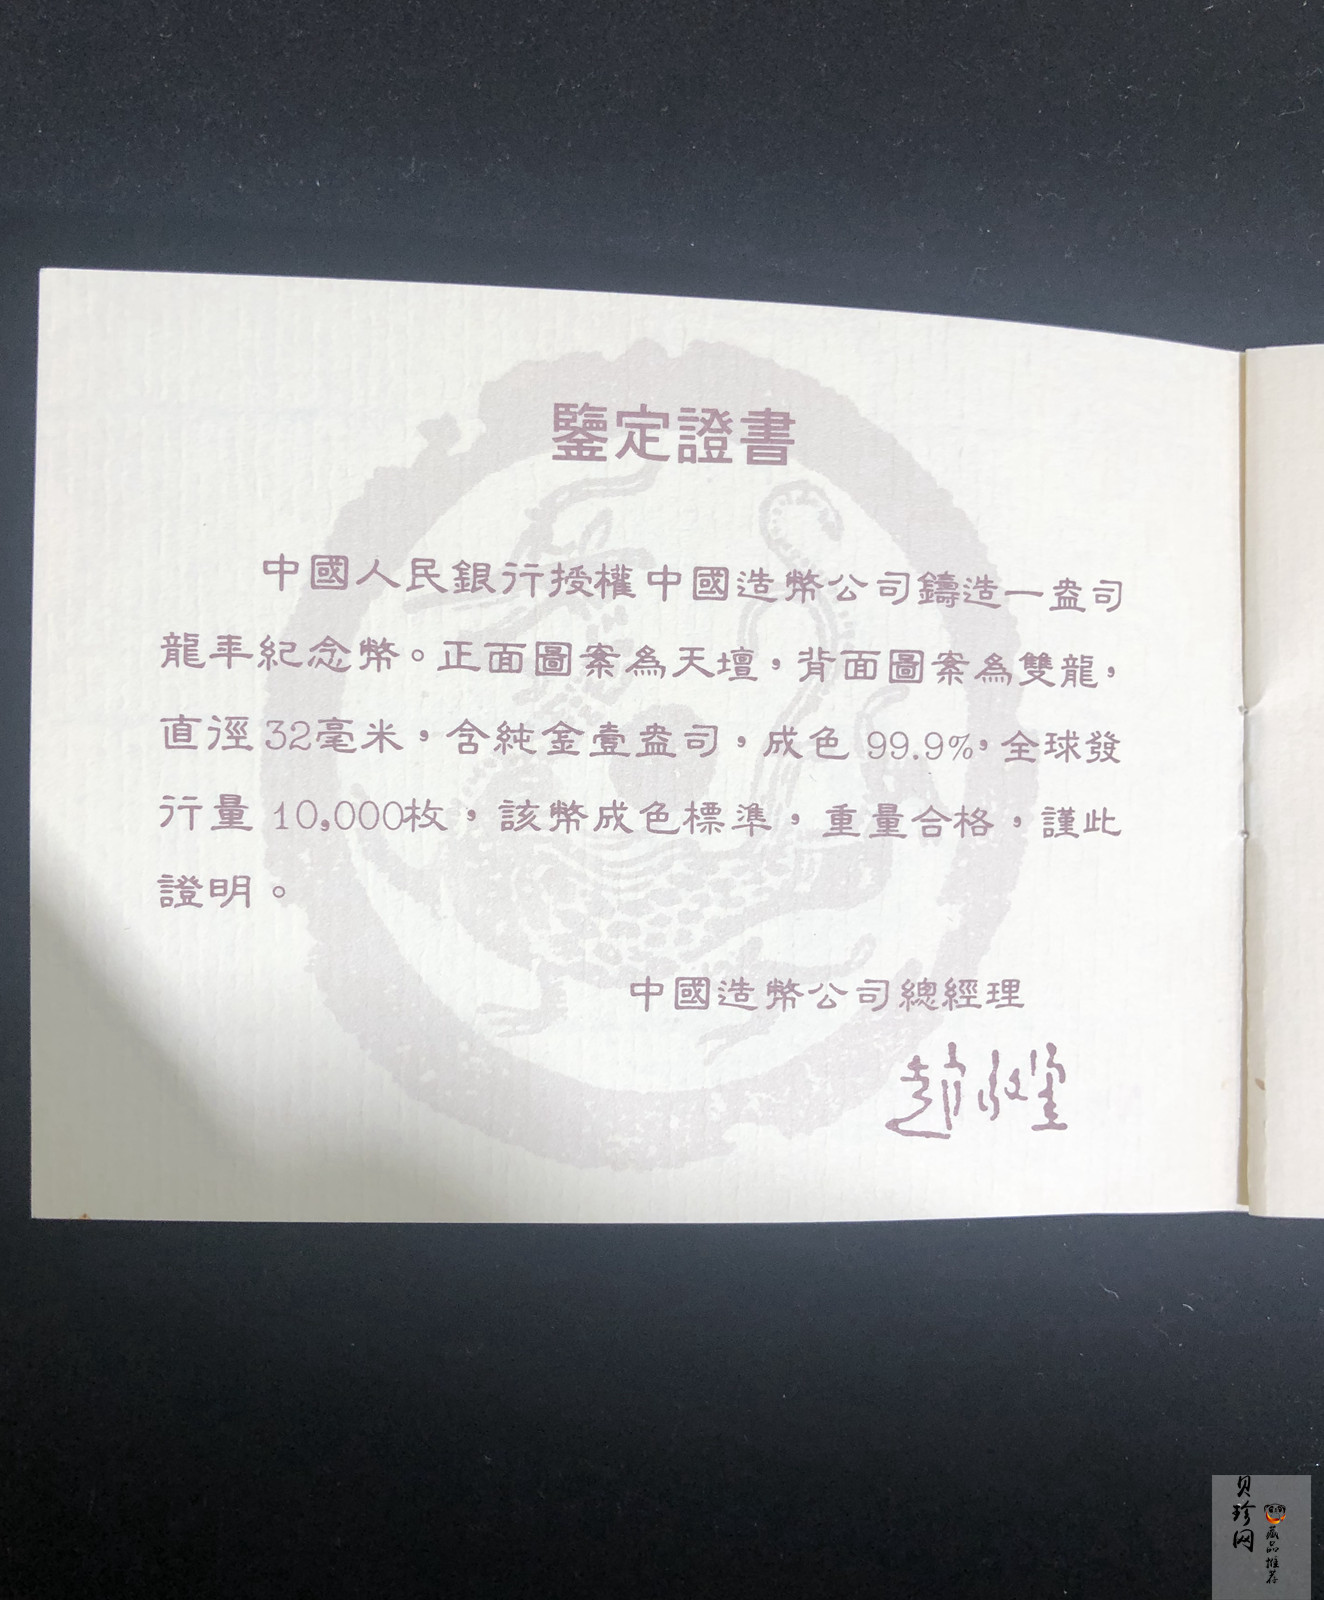 鑒定證書
中國人民銀行授權中國造幣公司鑄造一盎司
龍年紀念幣。正面圖案為天壇，背面圖案為雙龍，
直徑32毫米，含純金壹盎司，成色99.9%，全球發
行量10,000枚，該幣成色標準，重量合格，謹此
證明。
中國造幣公司總經理
贝珍网
藏品推荐